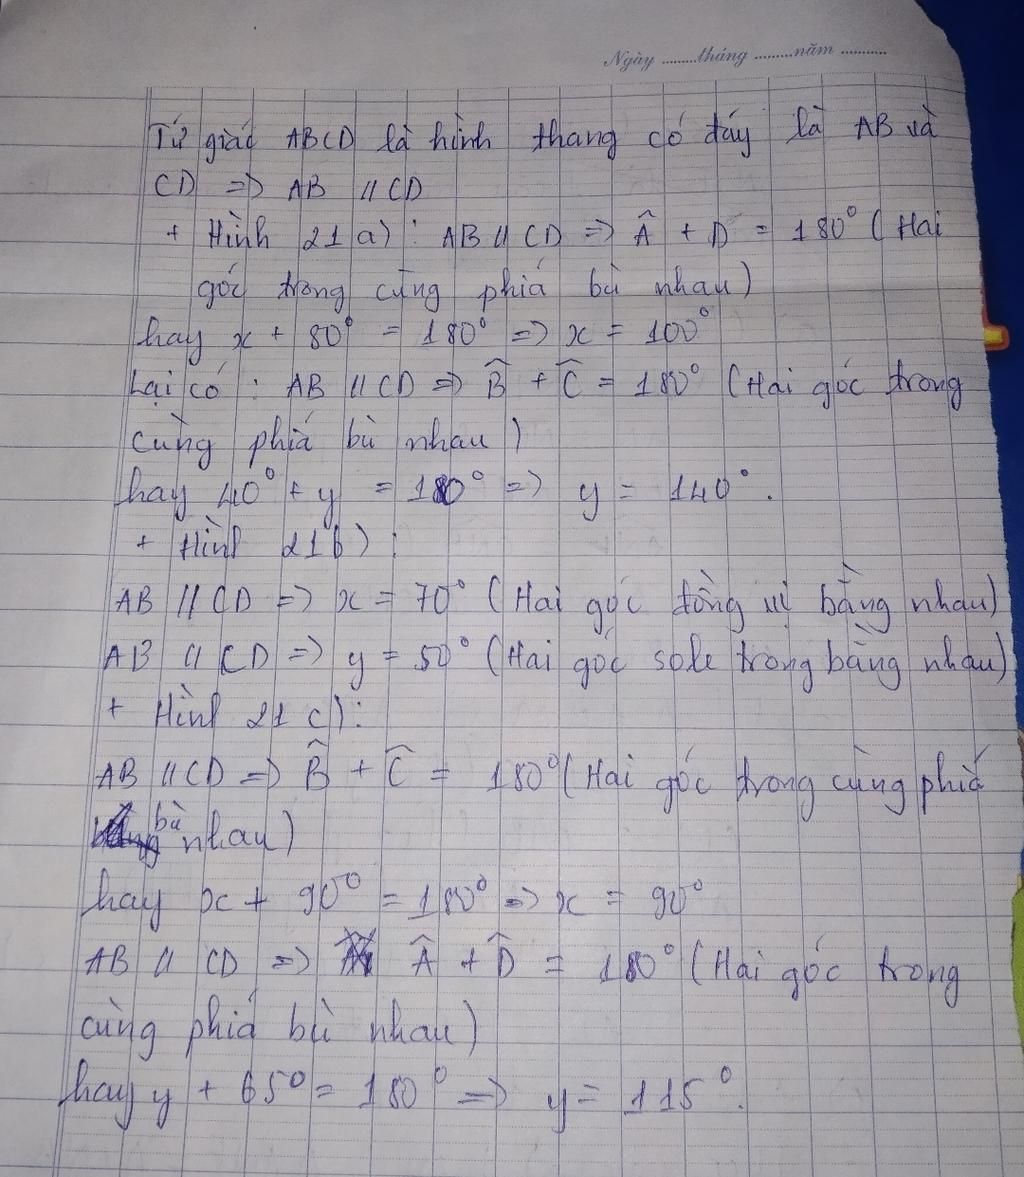 Ngày ........tháng ........năm ..........
Tứ giác ABCD là hình thang có đáy là AB và
CD => AB // CD
+ Hình 21 a) : AB // CD => Â + D = 180° ( Hai
góc trong cùng phía bù nhau )
hay x + 80° = 180° => x = 100°
Lại có : AB // CD => B̂ + Ĉ = 180° ( Hai góc trong
cùng phía bù nhau )
hay 40° + y = 180° => y = 140° .
+ Hình 21 b) :
AB // CD => x = 70° ( Hai góc đồng vị bằng nhau )
AB // CD => y = 50° ( Hai góc sole trong bằng nhau )
+ Hình 21 c) :
AB // CD => B̂ + Ĉ = 180° ( Hai góc trong cùng phía
bù nhau )
hay x + 90° = 180° => x = 90°
AB // CD => Â + D̂ = 180° ( Hai góc trong
cùng phía bù nhau )
hay y + 65° = 180° => y = 115° .